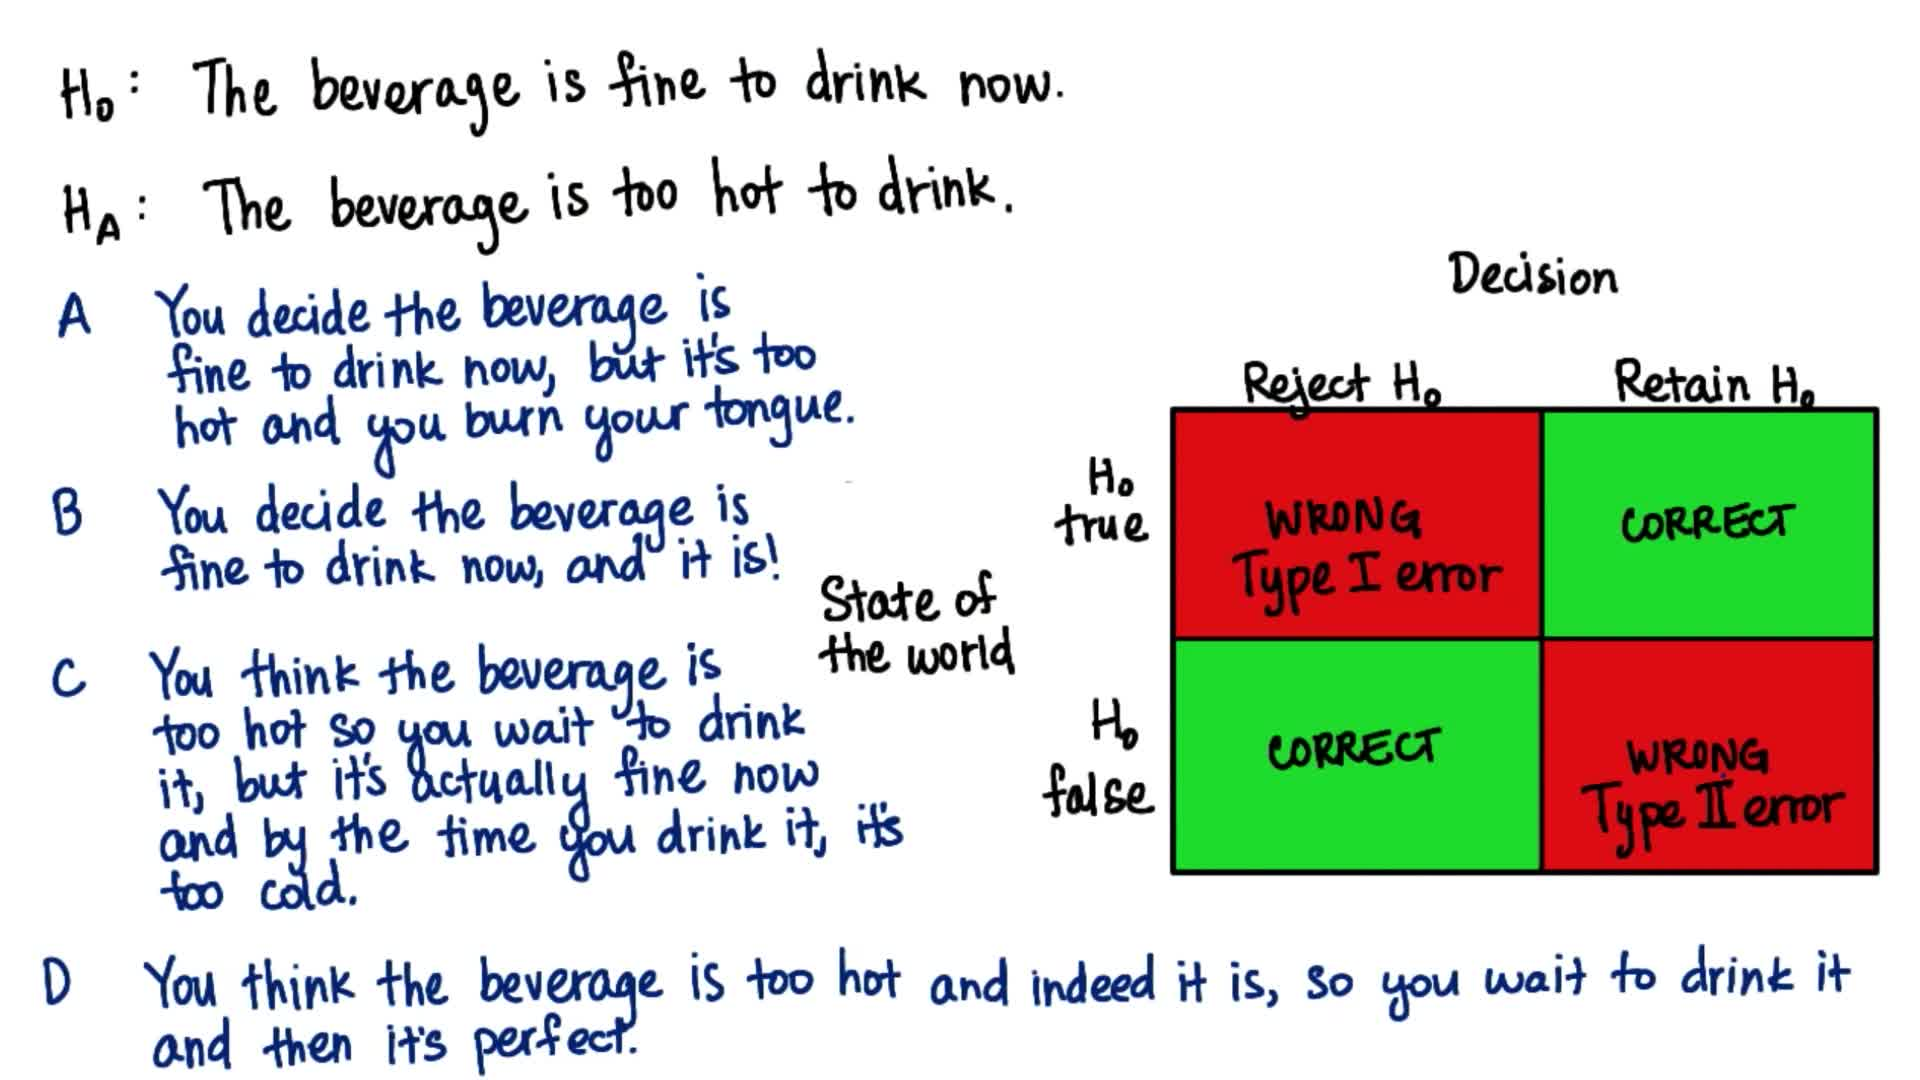 H₀: The beverage is fine to drink now.
H_A: The beverage is too hot to drink.
A You decide the beverage is
fine to drink now, but it's too
hot and you burn your tongue.
B You decide the beverage is
fine to drink now, and it is!
C You think the beverage is
too hot so you wait to drink
it, but it's actually fine now
and by the time you drink it, it's
too cold.
D You think the beverage is too hot and indeed it is, so you wait to drink it
and then it's perfect.
Decision
Reject H₀ Retain H₀
State of
the world
H₀
true
WRONG
Type I error
CORRECT
H₀
false
CORRECT
WRONG
Type II error